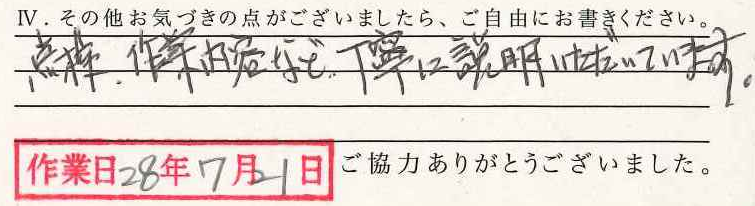 Ⅳ．その他お気づきの点がございましたら、ご自由にお書きください。
点検、作業内容など、丁寧に説明いただいています。
作業日28年7月21日 ご協力ありがとうございました。